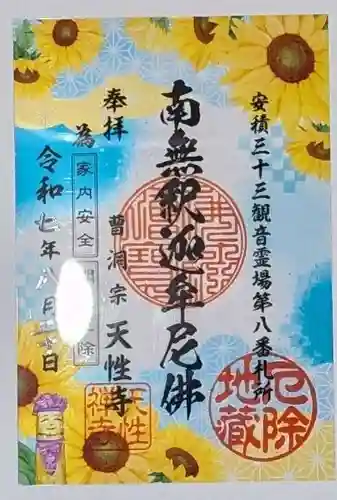 安積三十三観音霊場第八番札所
厄除
地蔵
南無釈迦牟尼佛
奉拝
曹洞宗 天性寺
天性
禅寺
為
家内安全
除
令和七年八月 日